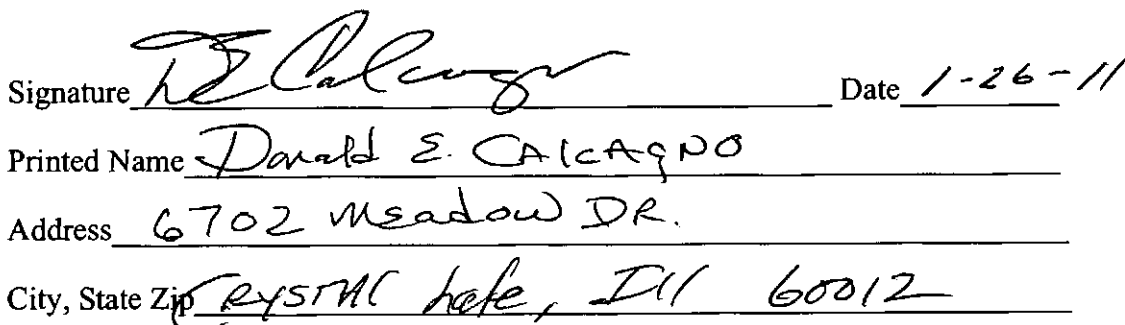 Signature DE Calcagno Date 1-26-11
Printed Name Donald E. CAlcAgNO
Address 6702 Meadow DR.
City, State Zip CRYSTAl Lake, Ill 60012